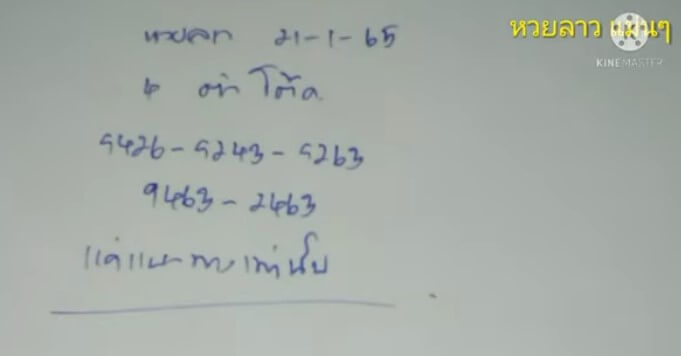 หวยลาว แม่นๆ
KINEMASTER
หวยลาว 21-1-65
4 ตัว โต๊ด
9426-9243-9263
9463-2463
แค่แนะทางเท่านั้น